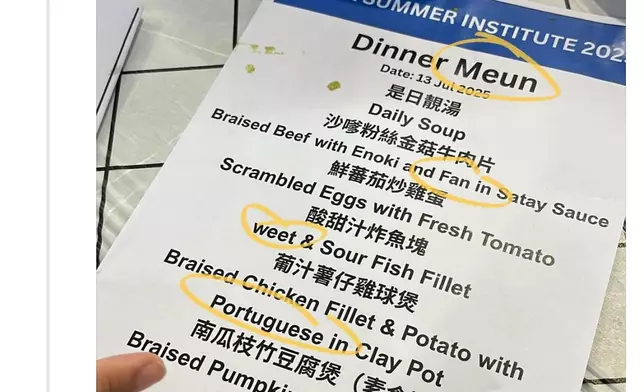 SUMMER INSTITUTE 202
Dinner Meun
Date: 13 Jul 2025
是日靚湯
Daily Soup
沙嗲粉絲金菇牛肉片
Braised Beef with Enoki and Fan in Satay Sauce
鮮蕃茄炒雞蛋
Scrambled Eggs with Fresh Tomato
酸甜汁炸魚塊
weet & Sour Fish Fillet
葡汁薯仔雞球煲
Braised Chicken Fillet & Potato with
Portuguese in Clay Pot
南瓜枝竹豆腐煲（素食
Braised Pumpki